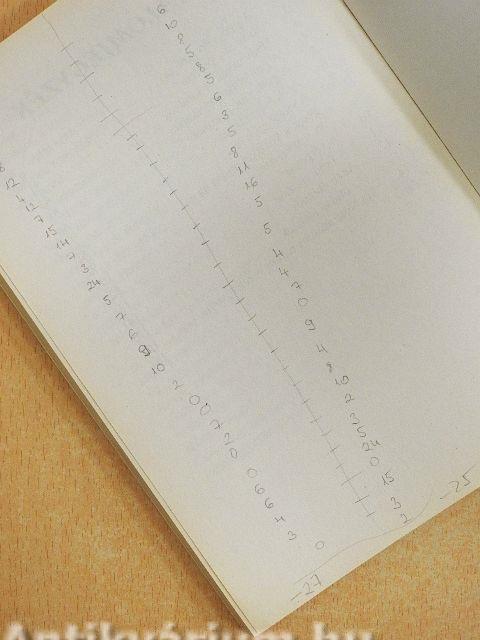 8
12
4
12
7
15
14
7
3
24
5
7
6
10
2
0
0
7
2
0
0
6
6
4
3
0
-27
6
10
2
5
8
5
6
3
5
8
11
16
5
5
4
4
7
0
4
8
10
2
3
5
24
0
15
3
2
-25
Antikvárium.hu